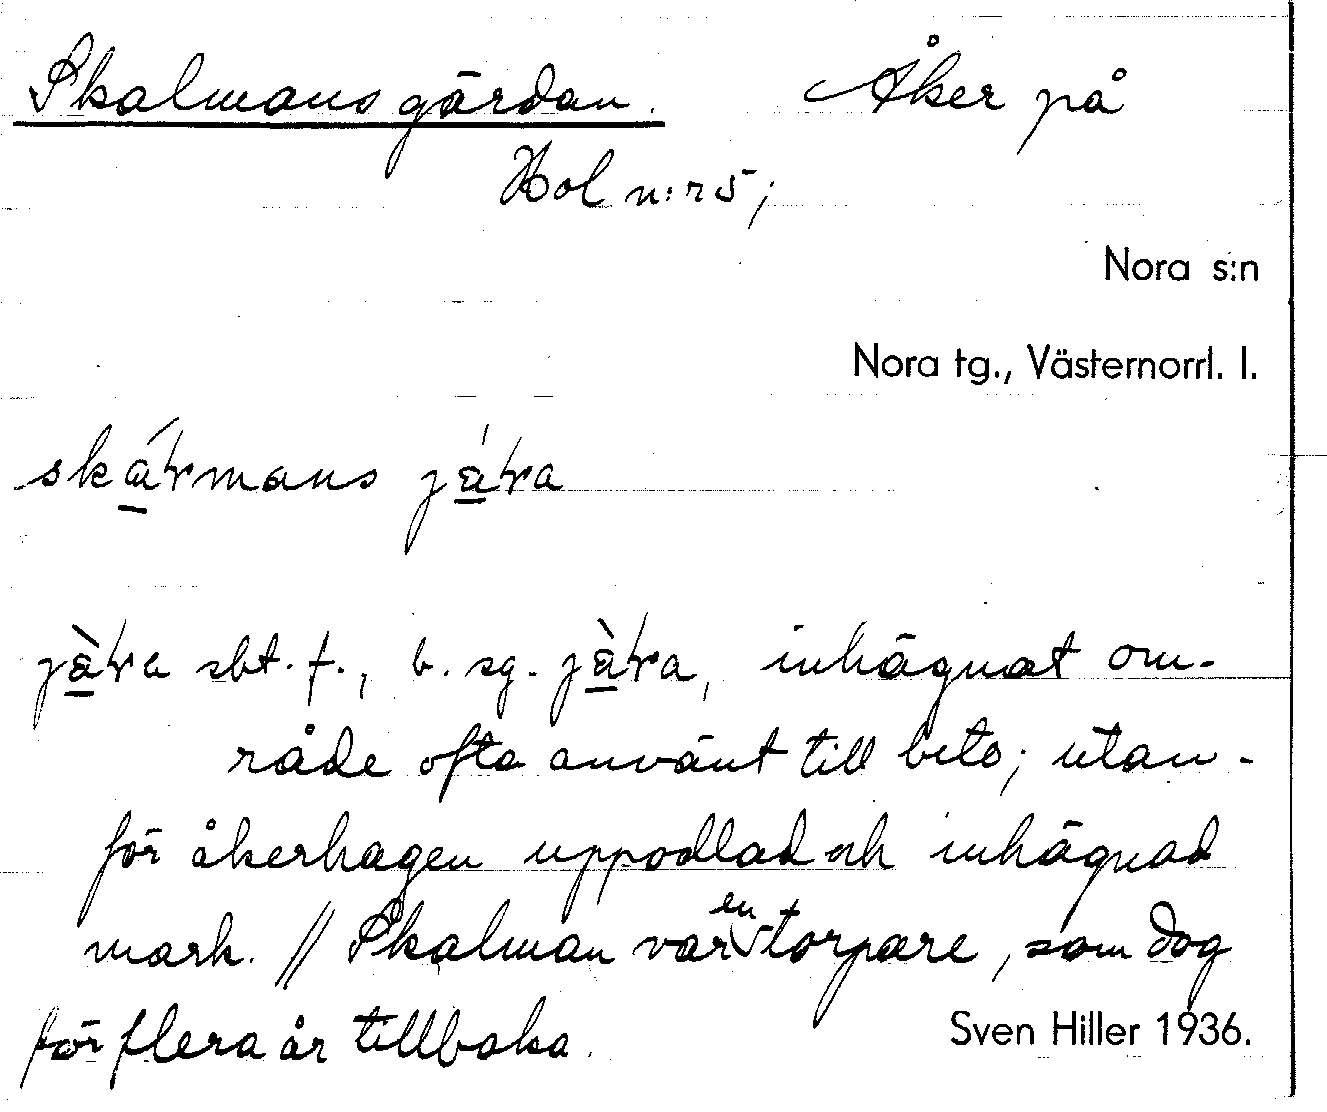 Skalmansgärdan. Åker på
Hol n:r 5;
Nora s:n
Nora tg., Västernorrl. l.
skármans jára
jàra sbt. f., b. sg. jàra, inhägnat om-
råde ofta använt till bete; utan-
för åkerhagen uppodlad och inhägnad
mark. // Skalman var en torpare, som dog
för flera år tillbaka.
Sven Hiller 1936.